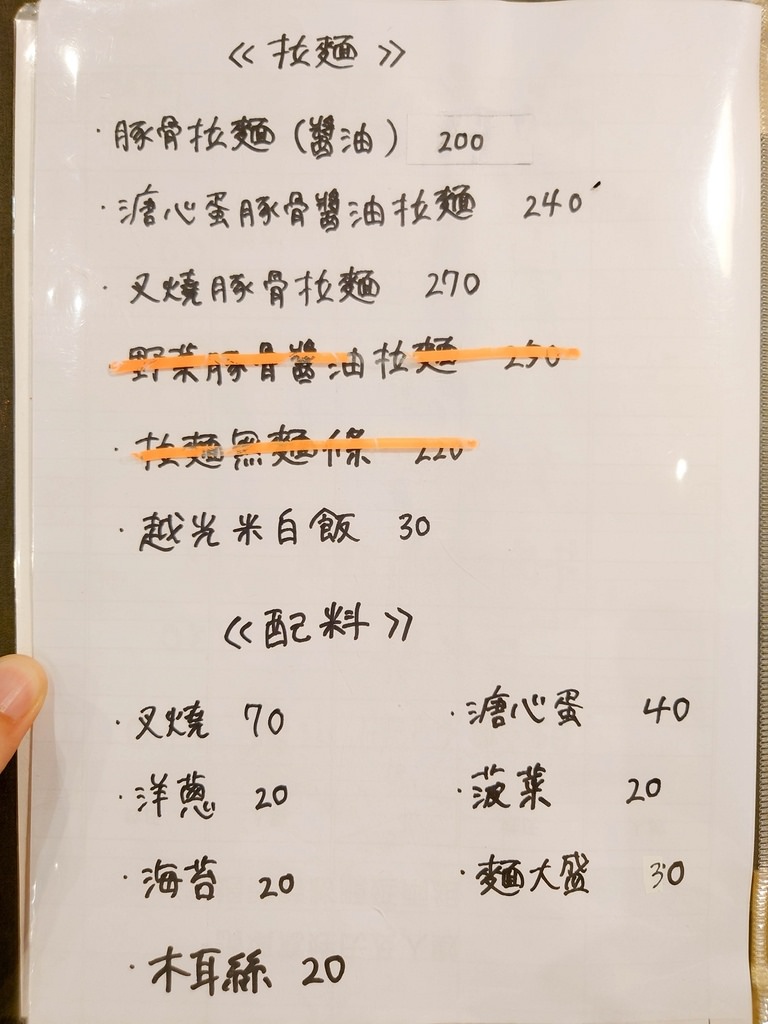 《拉麵》
·豚骨拉麵(醬油) 200
·溏心蛋豚骨醬油拉麵 240
·叉燒豚骨拉麵 270
野菜豚骨醬油拉麵 250
·拉麵無麵條 220
·越光米白飯 30
《配料》
·叉燒 70 ·溏心蛋 40
·洋蔥 20 ·菠菜 20
·海苔 20 ·麵大盛 30
·木耳絲 20